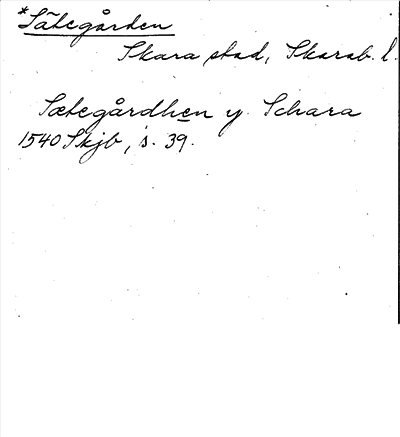 *Sätegården
Skara stad, Skarab. l.
Sætegårdhen y Schara
1540 Skjb, s. 39.